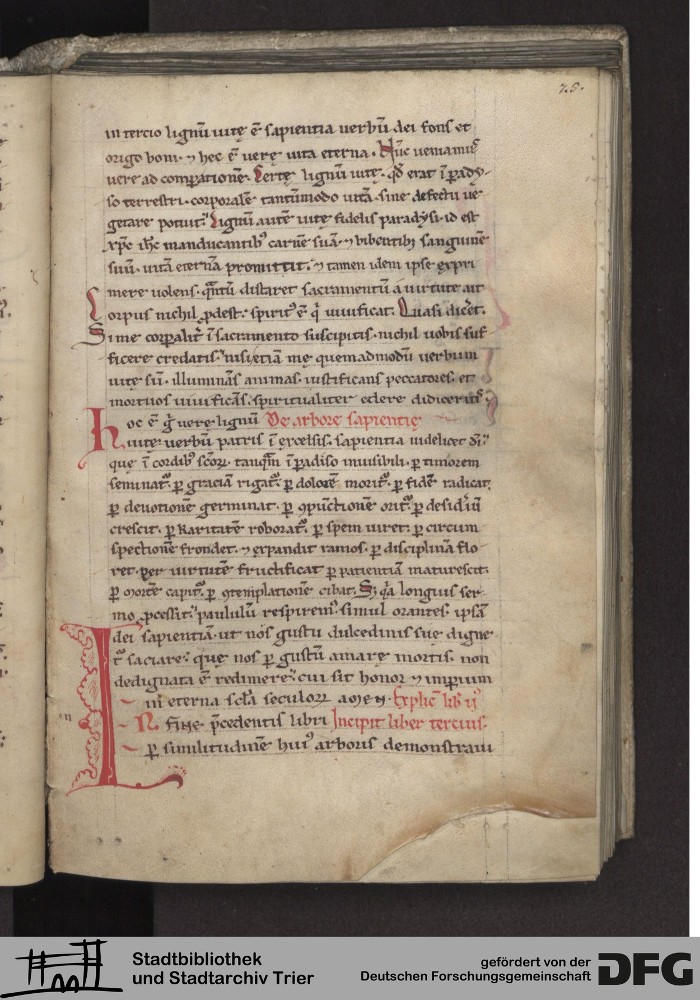 75.
in tercio lignū uitę ē sapientia uerbū dei fons et
origo boni · ⁊ hec ē uerę uita eterna . Nūc ueniamus
uere ad comparationē. Certę lignū uitę · qđ erat ī pady-
so terrestri · corporalē tantūmodo uitā sine defectu ue
getare potuit. Lignū autē uitę fidelis paradysi · id est
xp̄c ih̄c manducantib; carnē suā · ⁊ bibentib; sanguinē
suū · uitā eternā promittit · ⁊ tamen idem ipse expri
mere uolens · qntū distaret sacramentū a uirtute ait
Corpus nichil ꝓdest · spirit᷒ ē q̇ uiuificat. Quasi dicēt.
Si me corpalit̄ ī sacramento suscipitis · nichil uobis suf
ficere credatis · nisi etiam mę quemadmodū uerbum
uitę sū · illuminās animas · iustificans peccatores · et
mortuos uiuificās · spiritualiter edere didiceritis
hoc ē ġ uerę lignū De arbore sapientię
uitę uerbū patris ī excelsis · sapientia uidelicet dī ·
quę ī cordib; sc̄oꝝ · tanqm̄ ī padiso inuisibili · ꝑ timorem
seminat᷒ · ꝑ graciā rigat᷒ · ꝑ dolorē morit᷒ · ꝑ fidē radicat᷒
ꝑ deuotionē germinat · ꝑ ꝯpūctionē orit᷒ · ꝑ desideriū
crescit · ꝑ karitatem roborat᷒ · ꝑ spem uiret · ꝑ circum
spectionē frondet · ⁊ expandit ramos · ꝑ disciplinā flo-
ret · per uirtutē fructificat ꝑ patientiā maturescit ·
ꝑ mortē capit᷒ · ꝑ ꝯtemplationē cibat · Sꝫ qa longius ser-
mo ꝓcessit · paululū respirem᷒ · simul orantes · ipsā
dei sapientiā · ut nos gustu dulcedinis suę digne
t᷒ saciare · quę nos ꝑ gustū amarę mortis · non
dedignata ē redimere · cui sit honor ⁊ imperium
in eterna sc̄la seculorum amen · Explic̄ lib᷒ ij᷒
IN fine p̄cedentis libri Incipit liber tercius ·
ꝑ similitudinē hui᷒ arboris demonstraui
Stadtbibliothek
und Stadtarchiv Trier
gefördert von der
Deutschen Forschungsgemeinschaft
DFG